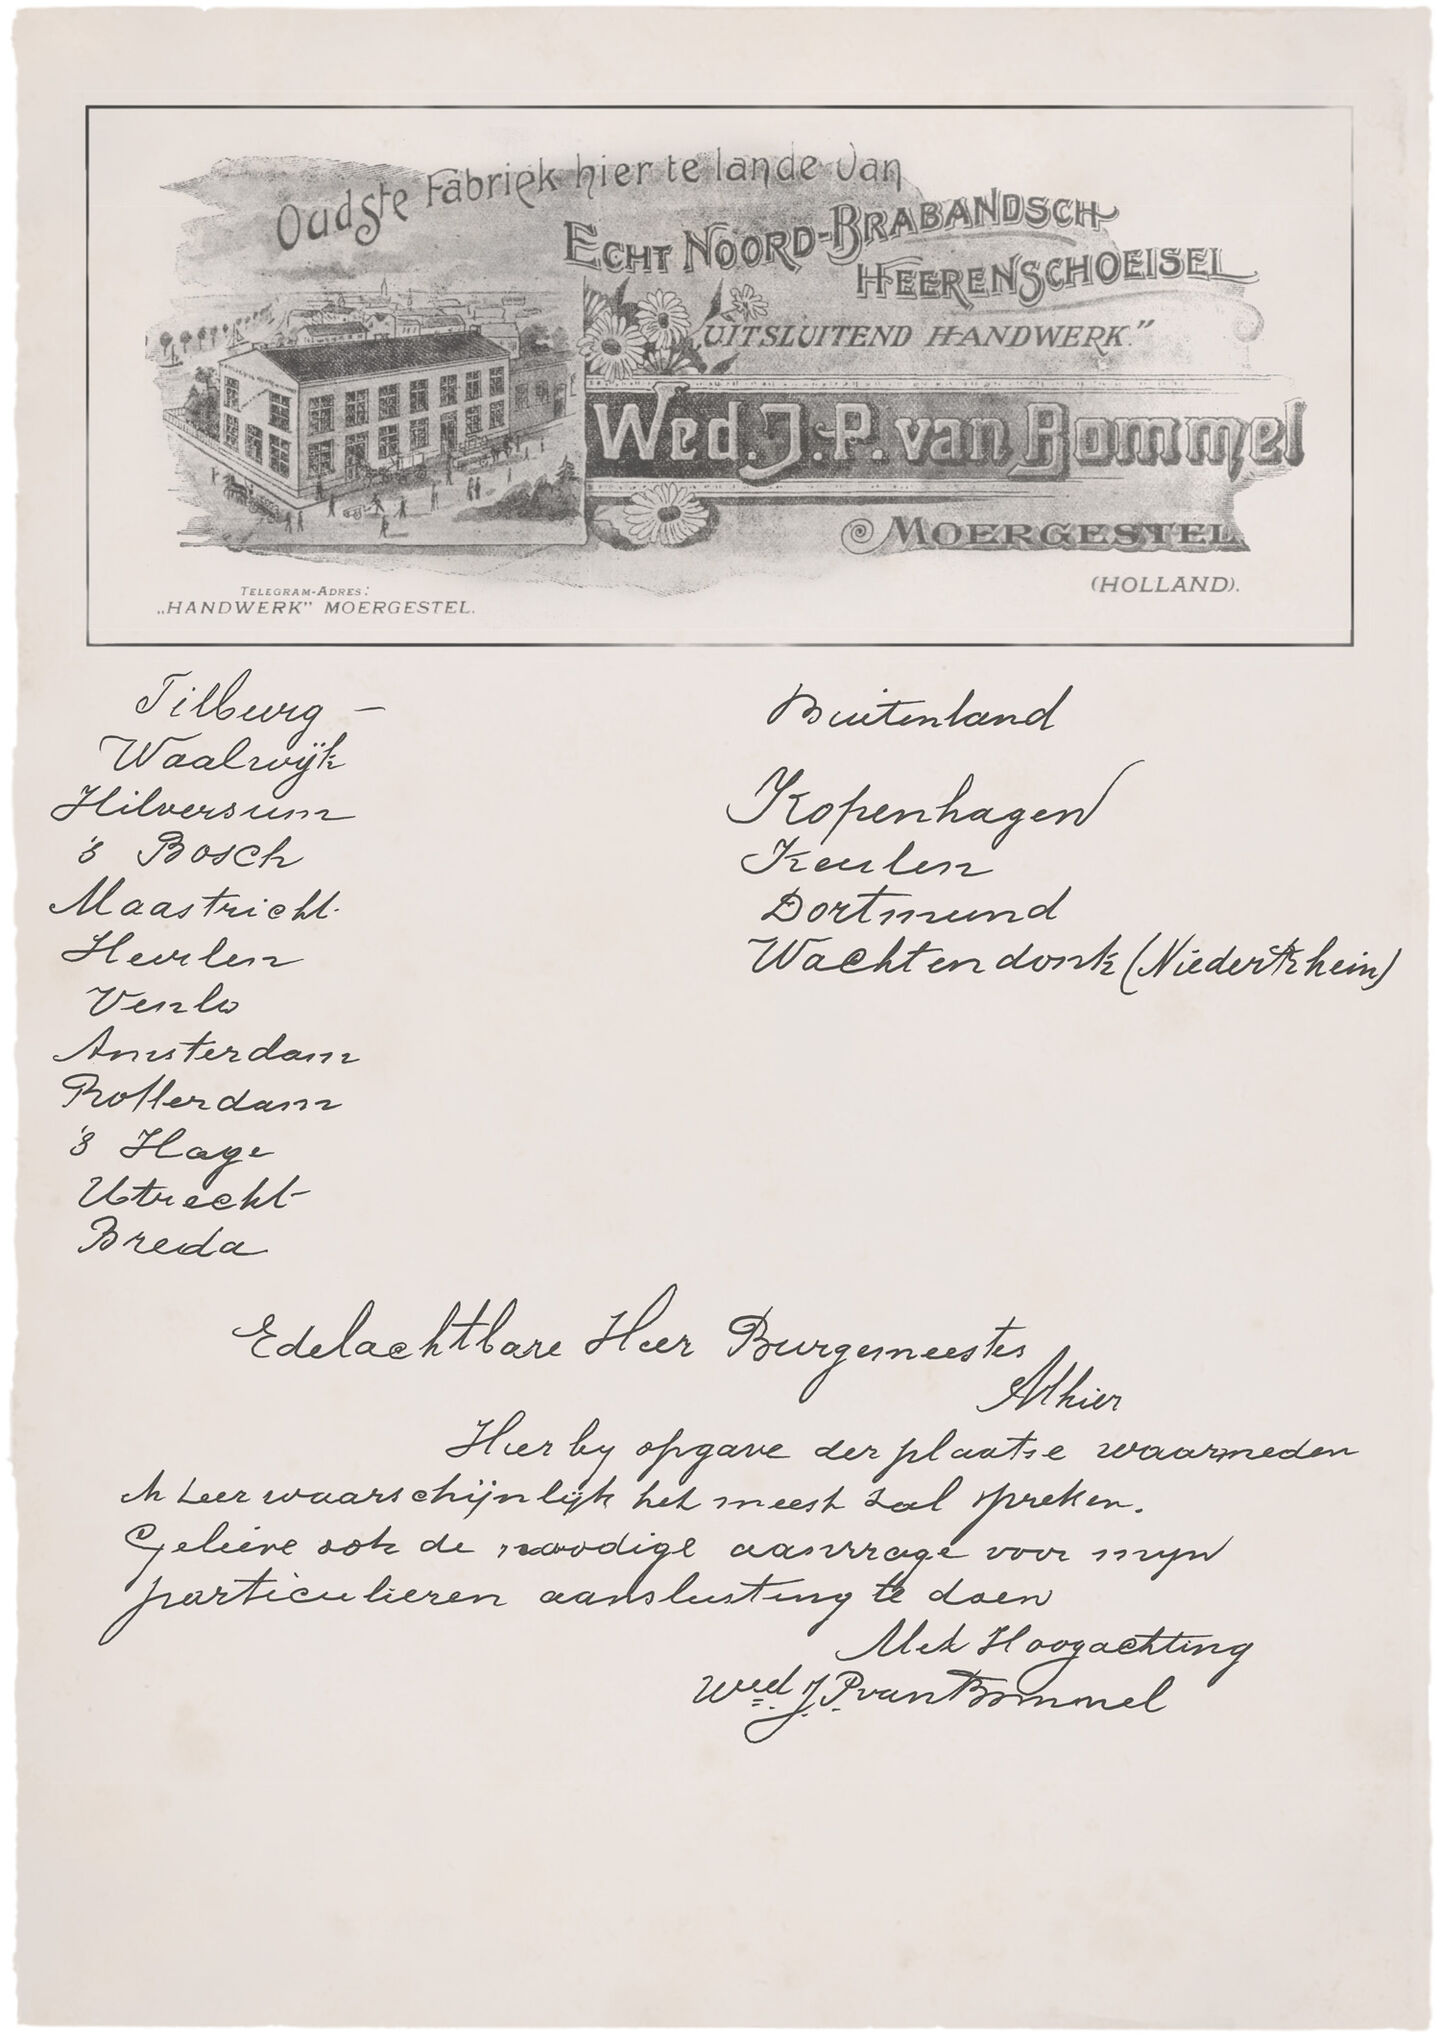 Oudste Fabriek hier te lande van
ECHT NOORD-BRABANDSCH
HEERENSCHOEISEL
„UITSLUITEND HANDWERK."
Wed. J.P. van Bommel
MOERGESTEL
(HOLLAND).
TELEGRAM-ADRES:
„HANDWERK" MOERGESTEL.
Tilburg –
Waalwijk
Hilversum
's Bosch
Maastricht
Heerlen
Venlo
Amsterdam
Rotterdam
's Hage
Utrecht
Breda
Buitenland
Kopenhagen
Keulen
Dortmund
Wachtendonk (Niederrhein)
Edelachtbare Heer Burgemeester
Alhier
Hierby opgave der plaatse waarmeden
waarschijnlijk het meest zal spreken.
Gelieve ook de noodige aanvrage voor myn
particulieren aansluiting te doen
Met Hoogachting
Wed. J.P. van Bommel